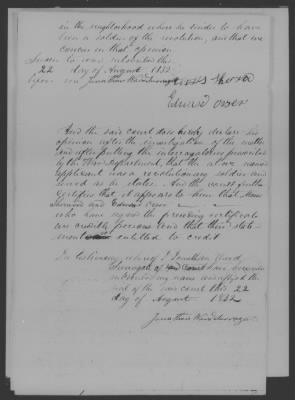 in the neighborhood where he resides to have
been a soldier of the revolution, and that we
concur in that opinion
Sworn to and subscribed this
22 day of August 1832
before me Jonathan Ward Surrogate
Edward
And the said court do hereby declare his
opinion after the investigation of the matter
and after putting the interrogatories presented
by the War Department, that the above named
applicant was a revolutionary soldier and
served as he states. And the court further
certifies that it appears to them that
and Edward
who have signed the preceding certificate
are credible persons and that their state-
ment is entitled to credit
In testimony whereof I Jonathan Ward
Surrogate of said Court have hereunto
subscribed my name and affixed the
seal of the said court this 22
day of August 1832
Jonathan Ward Surrogate